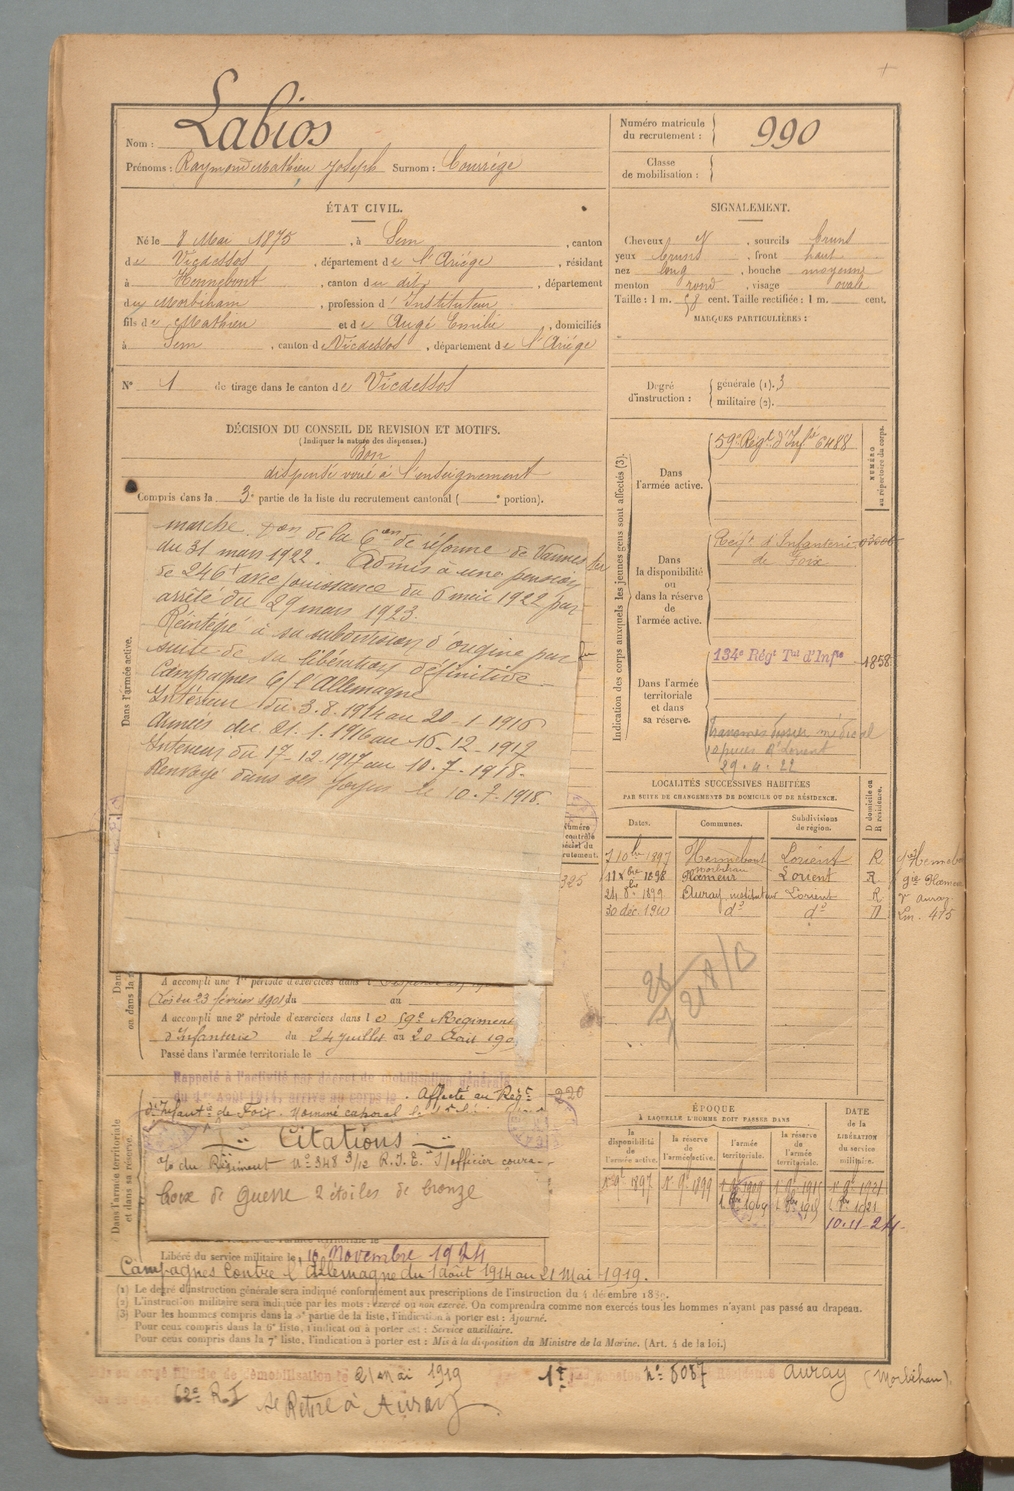 Nom : Labios
Prénoms : Raymond Mathieu Joseph Surnom : Courrége
Numéro matricule du recrutement : 990
Classe de mobilisation :
ÉTAT CIVIL.
Né le 8 Mai 1875, à Sem, canton
de Vicdessos, département de l'Ariége, résidant
à Hennebont, canton du dit, département
du Morbihan, profession d'Instituteur
fils de Mathieu et de Augé Emilie, domiciliés
à Sem, canton de Vicdessos, département de l'Ariége
N° 1 de tirage dans le canton de Vicdessos
SIGNALEMENT.
Cheveux N, sourcils bruns
yeux bruns, front haut
nez long, bouche moyenne
menton rond, visage ovale
Taille : 1 m. 58 cent. Taille rectifiée : 1 m. cent.
MARQUES PARTICULIÈRES :
Degré d'instruction : générale (1). 3
militaire (2).
DÉCISION DU CONSEIL DE REVISION ET MOTIFS.
(Indiquer la nature des dispenses.)
Bon
dispensé voué à l'enseignement
Compris dans la 3e partie de la liste du recrutement cantonal ( e portion).
marche. de la Con de réforme de Vannes
du 31 mars 1922. Admis à une pension
de 246f avec jouissance du 6 mai 1922 par
arrêté du 29 mars 1923.
Réintégré à sa subdivision d'origine par
suite de sa libération définitive
Campagnes c/ l'Allemagne
Intérieur du 3.8.1914 au 20-1-1916
Armées du 21.1.1916 au 16-12-1917
Intérieur du 17-12-1917 au 10.7.1918.
Renvoyé dans ses foyers le 10.7.1918.
Dans l'armée active.
325
A accompli une 1re période d'exercices dans l
23 février 1901 du au
A accompli une 2e période d'exercices dans le 59e Régiment
d'Infanterie du 24 juillet au 20 Aout 190
Passé dans l'armée territoriale le
Rappelé à l'activité par décret de mobilisation générale
du 1er Août 1914, arrivé au corps le Affecté au Régt 220
d'Infantie de Foix. Nommé caporal le
Citations
o/o du Régiment N° 348 3/12 R.I.E. S/officier coura-
Croix de guerre 2 étoiles de bronze
Dans l'armée territoriale et dans sa réserve.
Libéré du service militaire le 10 Novembre 1924
Campagnes contre l'Allemagne du 1 août 1914 au 21 Mai 1919.
Indication des corps auxquels les jeunes gens sont affectés (3).
NUMÉRO au répertoire du corps.
Dans l'armée active.
59e Regt d'Infie 6488
Dans la disponibilité ou dans la réserve de l'armée active.
Regt d'Infanterie de Foix
Dans l'armée territoriale et dans sa réserve.
134e Régt Tal d'Infie 1858
29.4.22
LOCALITÉS SUCCESSIVES HABITÉES
PAR SUITE DE CHANGEMENTS DE DOMICILE OU DE RÉSIDENCE.
Dates. Communes. Subdivisions de région. D domicile ou R résidence.
7 10bre 1897 Hennebont Morbihan Lorient R
11 Xbre 1898 Plœmeur Lorient R
24 8bre 1899 Auray instituteur Lorient R
30 déc. 1910 do do D
ÉPOQUE
À LAQUELLE L'HOMME DOIT PASSER DANS
la disponibilité de l'armée active. la réserve de l'armée active. l'armée territoriale. la réserve de l'armée territoriale.
DATE de la LIBÉRATION du service militaire.
1er 9bre 1897 1er 9bre 1899
10.11.24.
(1) Le degré d'instruction générale sera indiqué conformément aux prescriptions de l'instruction du 4 décembre 1889.
(2) L'instruction militaire sera indiquée par les mots : exercé ou non exercé. On comprendra comme non exercés tous les hommes n'ayant pas passé au drapeau.
(3) Pour les hommes compris dans la 5e partie de la liste, l'indication à porter est : Ajourné.
Pour ceux compris dans la 6e liste, l'indication à porter est : Service auxiliaire.
Pour ceux compris dans la 7e liste, l'indication à porter est : Mis à la disposition du Ministre de la Marine. (Art. 4 de la loi.)
démobilisation le 21 Mai 1919 1er échelon N° 8087 Résidence Auray (Morbihan).
62e R.I se Retire à Auray